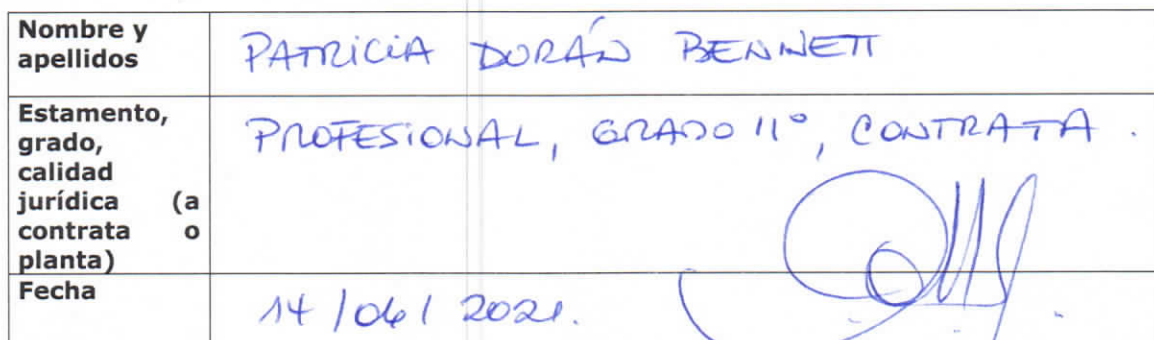 Nombre y apellidos
PATRICIA DORÁN BENNETT
Estamento, grado, calidad jurídica (a contrata o planta)
PROFESIONAL, GRADO 11°, CONTRATA.
Fecha
14/06/2021.